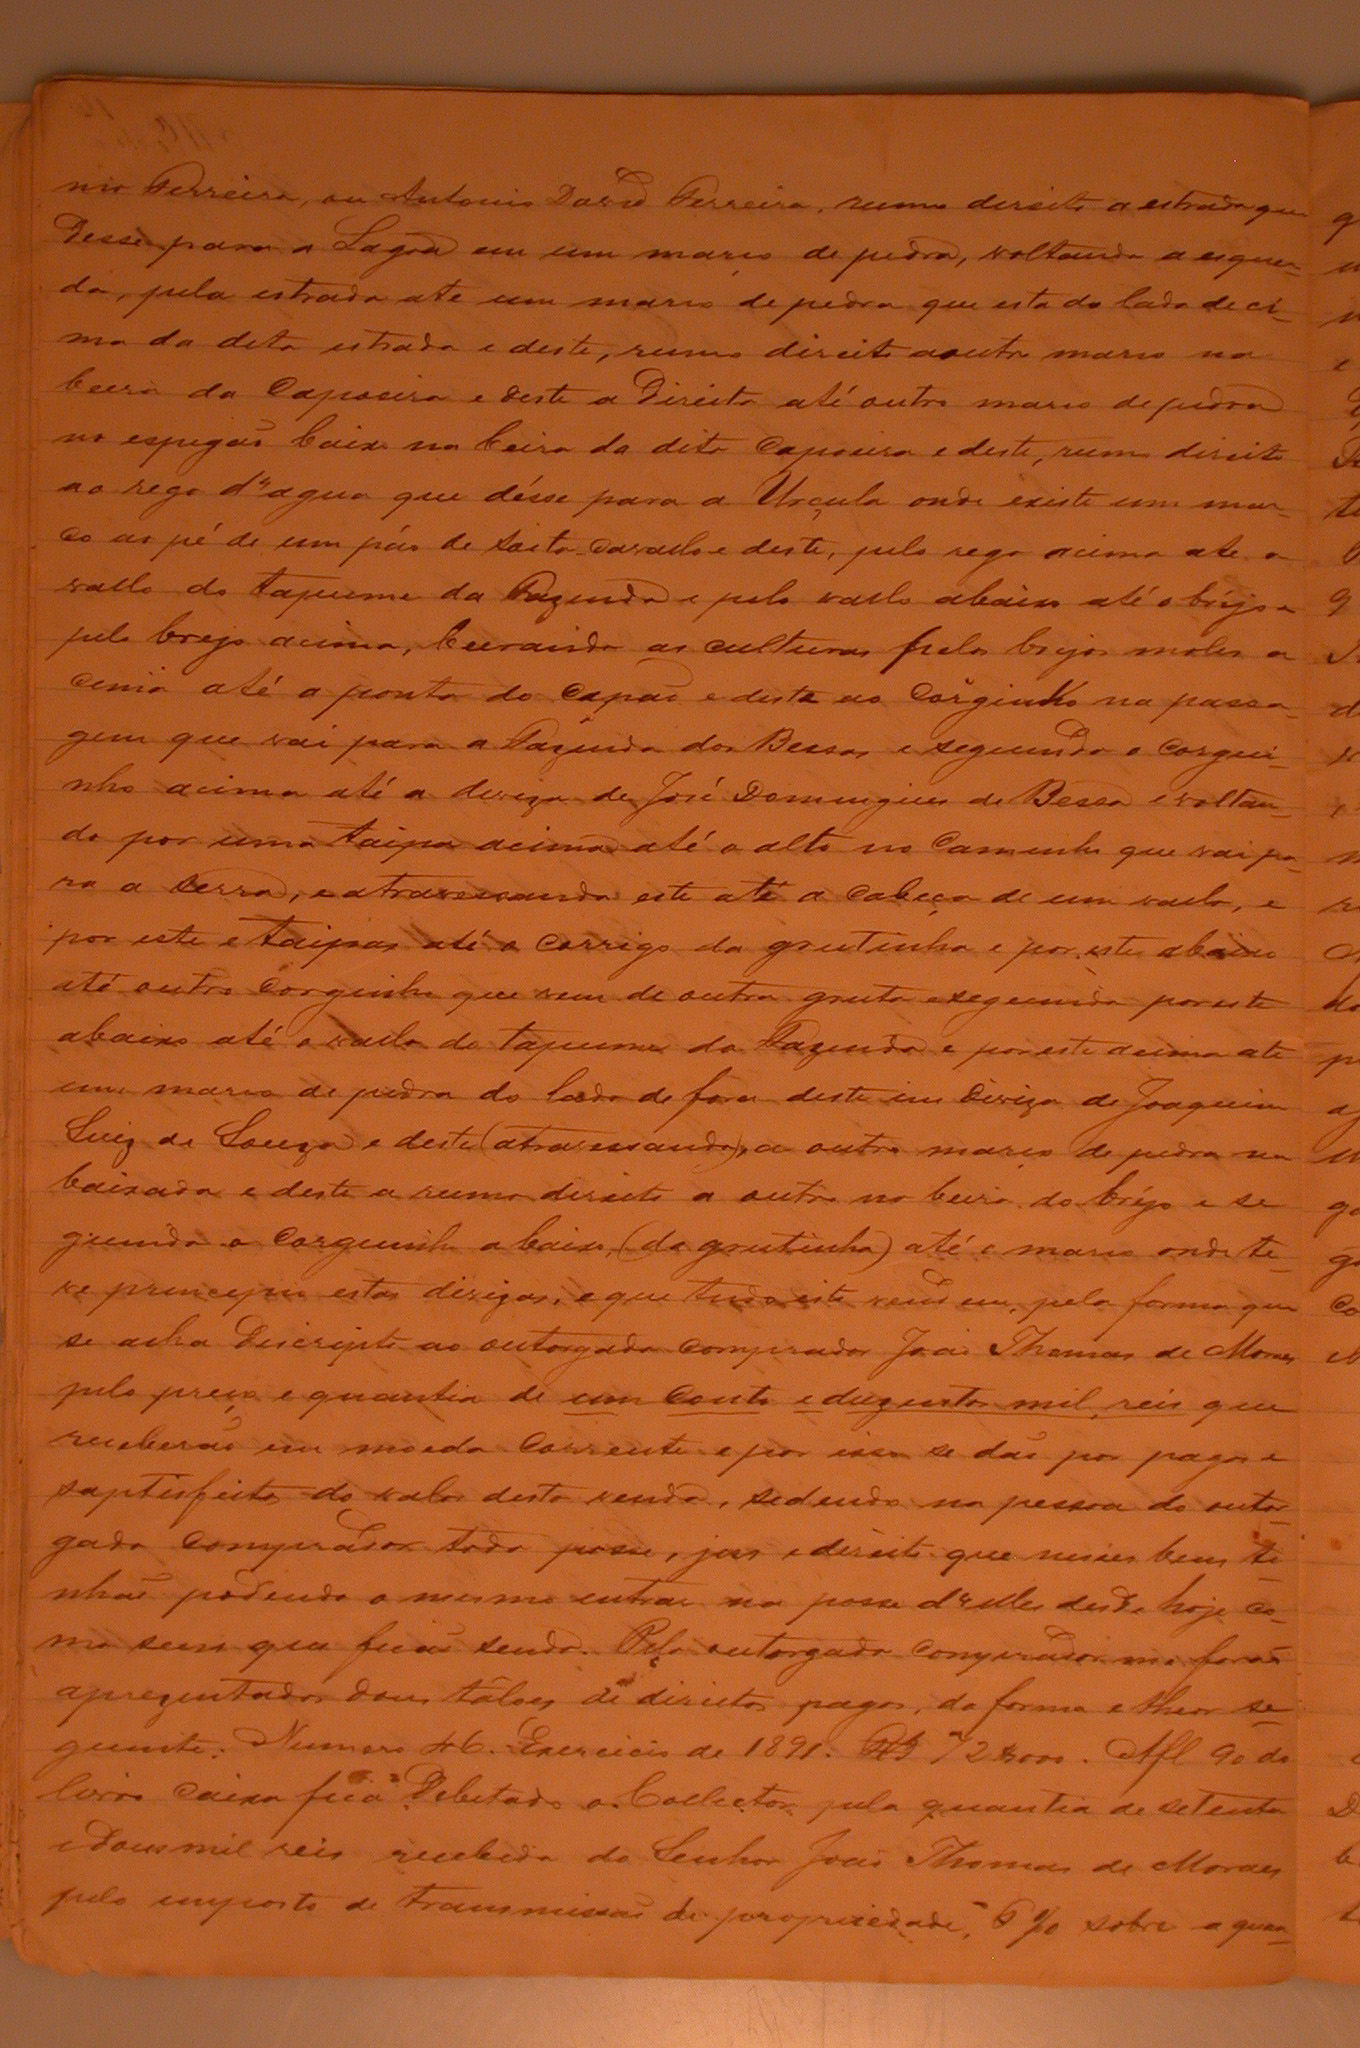 nio Ferreira, ou Antonio David Ferreira, rumo direito a estrada que
Desse para a Lagoa em um marco de pedra, voltando a esquer-
da, pela estrada ate um marco de pedra que esta do lado de ci-
ma da dita estrada e deste, rumo direito a outro marco na
beira da Capoeira e deste a Direita até outro marco de pedra
no espigaõ baixo na beira da dita Capoeira e deste, rumo direito
ao rego d'agua que désse para a Urçula onde existe um mar-
co ao pé de um páo de Soita-cavallo e deste, pelo rego acima ate o
vallo do tapume da Fazenda e pelo vallo abaixo até o bréjo e
pelo brejo acima, beirando as culturas pelos brejos moles a
cima até a ponta do Capaõ e desta ao Corginho na passa-
gem que vai para a Fazenda dos Bessas e seguindo o corgui-
nho acima até a deviza de José Domingues de Bessa e voltan-
do por uma taipa acima até o alto no Caminho que vai pa-
ra a Serra, e atravessando este até a Cabeça de um vallo, e
por este e taipas até o corrigo da grutinha e por este abaixo
até outro Corginho que vem de outra gruta e seguindo por este
abaixo até o vallo do tapume da Fazenda e por este acima ate
um marco de pedra do lado de fora deste em diviza de Joaquim
Luiz de Souza e deste (atravessando), a outro marco de pedra na
baixada e deste a rumo direito a outro na beira do bréjo e se
guindo o Corguinho abaixo, (da grutinha) até o marco onde te-
ve principio estas divizas, e que tudo isto vendem, pela forma que
se acha Discripto ao outorgado comprador Joaõ Thomas de Moraes
pelo preço e quantia de um Conto e duzentos mil reis que
receberaõ em moeda Corrente e por isso se daõ por pagos e
saptisfeitos do valor desta venda, sedendo na pessoa do outor-
gado Comprador toda posse, jus e direito que nesses bens ti-
nhaõ podendo o mesmo entrar na posse d'elles desde hoje co-
mo seus que ficaõ sendo. Pelo outorgado comprador me foraõ
aprezentados dous tálões de direitos pagos, da forma e theor se
guinte: Numero 46. Exercicio de 1891. 72$000. Afl 90 do
livro Caixa fica Debitado o Collector pela quantia de setenta
e Dous mil reis recebida do Senhor Joaõ Thomas de Moraes
pelo imposto de transmissaõ de propriedade, 6 % sobre a quan-